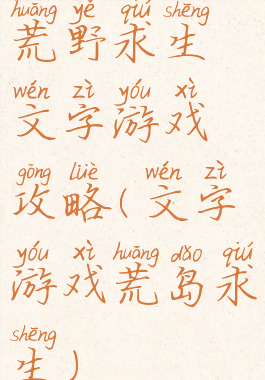 huāng yě qiú shēng
荒野求生
wén zì yóu xì
文字游戏
gōng lüè wén zì
攻略(文字
yóu xì huāng dǎo qiú
游戏荒岛求
shēng
生)